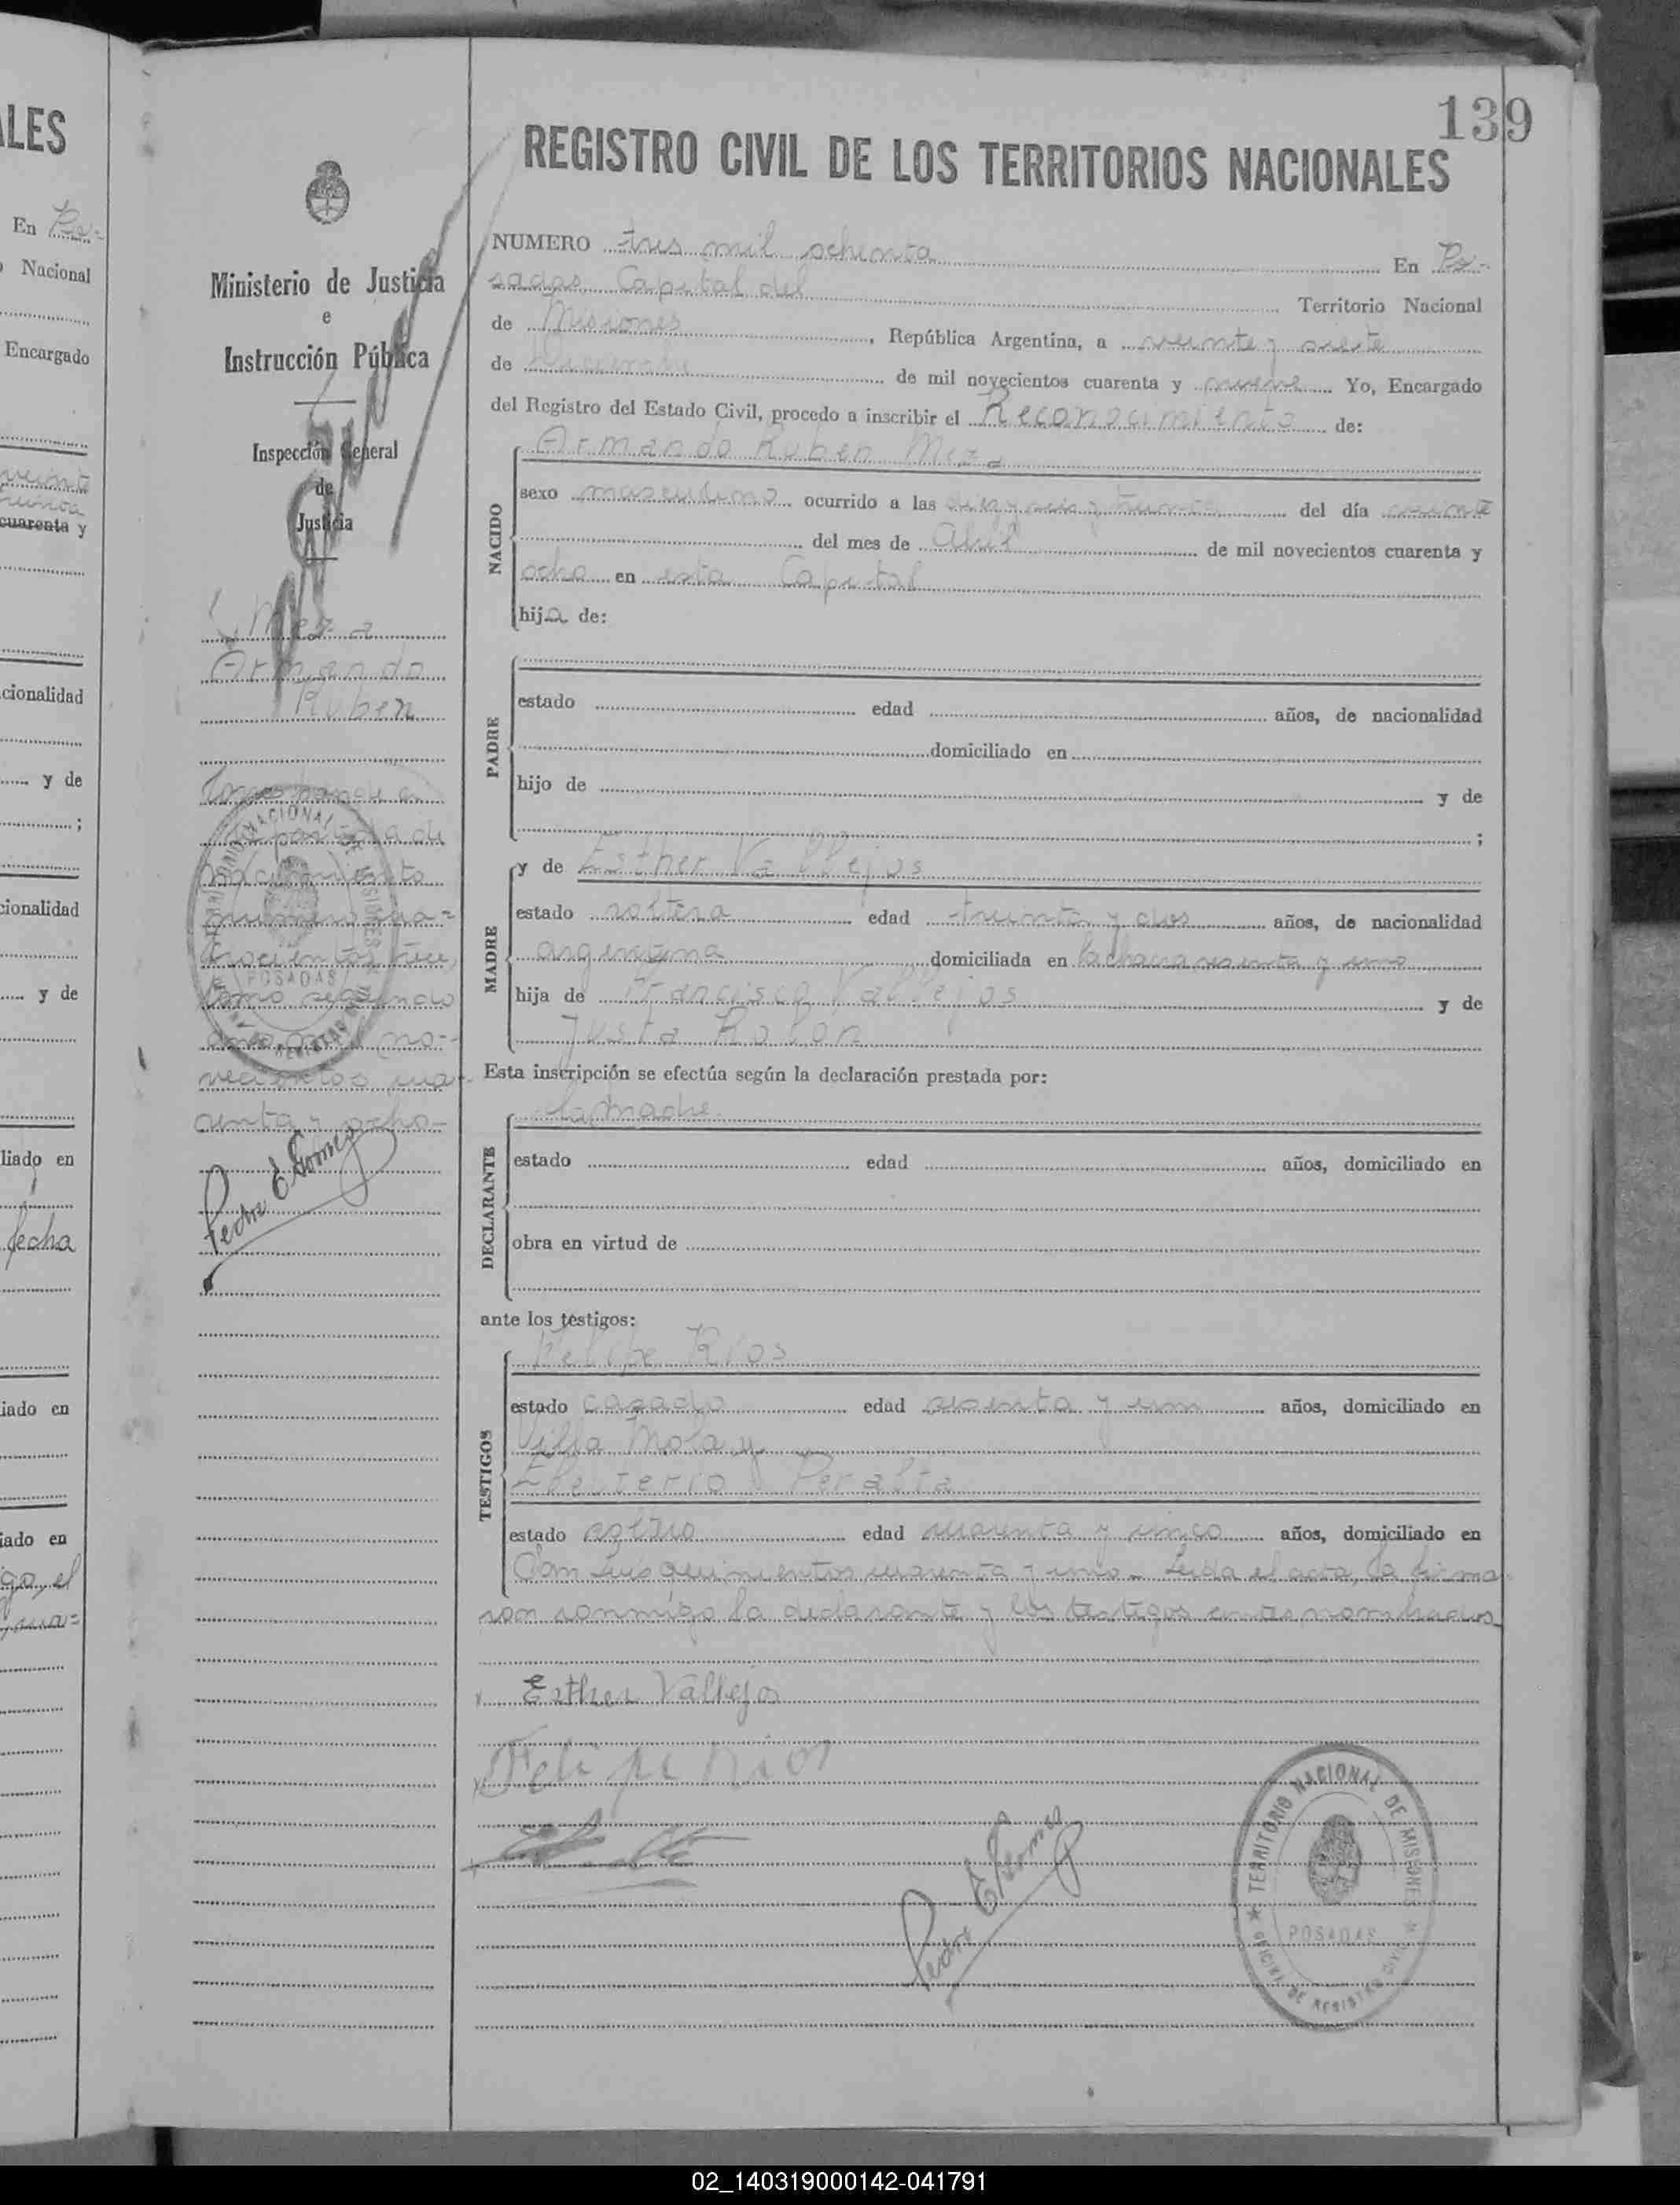 ALES
En Po-
Nacional
Encargado
veinte
cuarenta y
cionalidad
y de
;
cionalidad
y de
liado en
fecha
iado en
iado en
go, el
139
REGISTRO CIVIL DE LOS TERRITORIOS NACIONALES
Ministerio de Justicia
e
Instrucción Pública
Inspección General
de
Justicia
Meza
Armando
Ruben
Corresponde a
la partida de
nacimiento
numero cua-
trocientos trece,
tomo segundo
año mil no-
vecientos cua-
renta y ocho-
Pedro E Gomez
NUMERO tres mil ochenta En Po-
sadas Capital del Territorio Nacional
de Misiones, República Argentina, a veinte y siete
de Diciembre de mil novecientos cuarenta y nueve Yo, Encargado
del Registro del Estado Civil, procedo a inscribir el Reconocimiento de:
NACIDO
Armando Ruben Meza
sexo masculino ocurrido a las diez y seis y treinta del día veinte
del mes de Abril de mil novecientos cuarenta y
ocho en esta Capital
hijo de:
PADRE
estado edad años, de nacionalidad
domiciliado en
hijo de y de
;
MADRE
y de Esther Vallejos
estado soltera edad treinta y dos años, de nacionalidad
argentina domiciliada en la chacra sesenta y uno
hija de Francisco Vallejos y de
Justa Rolon
Esta inscripción se efectúa según la declaración prestada por:
DECLARANTE
la madre
estado edad años, domiciliado en
obra en virtud de
ante los testigos:
TESTIGOS
Felipe Rios
estado casado edad sesenta y un años, domiciliado en
Villa Mola y
Eleuterio Peralta
estado soltero edad cuarenta y cinco años, domiciliado en
San Luis quinientos cuarenta y uno - Leida el acta, la firma
ron conmigo la declarante y los testigos antes nombrados
x Esther Vallejos
x Felipe Rios
Pedro E Gomez
TERRITORIO NACIONAL DE MISIONES
POSADAS
OFICINA DE REGISTRO CIVIL
02_140319000142-041791